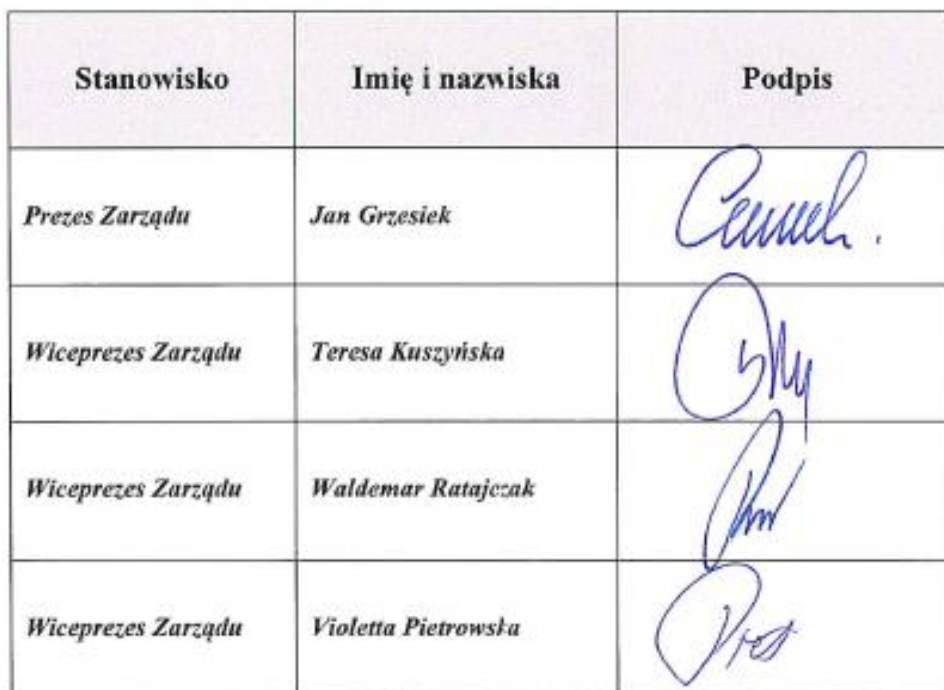 Stanowisko Imię i nazwiska Podpis
Prezes Zarządu Jan Grzesiek
Wiceprezes Zarządu Teresa Kuszyńska
Wiceprezes Zarządu Waldemar Ratajczak
Wiceprezes Zarządu Violetta Pietrowska